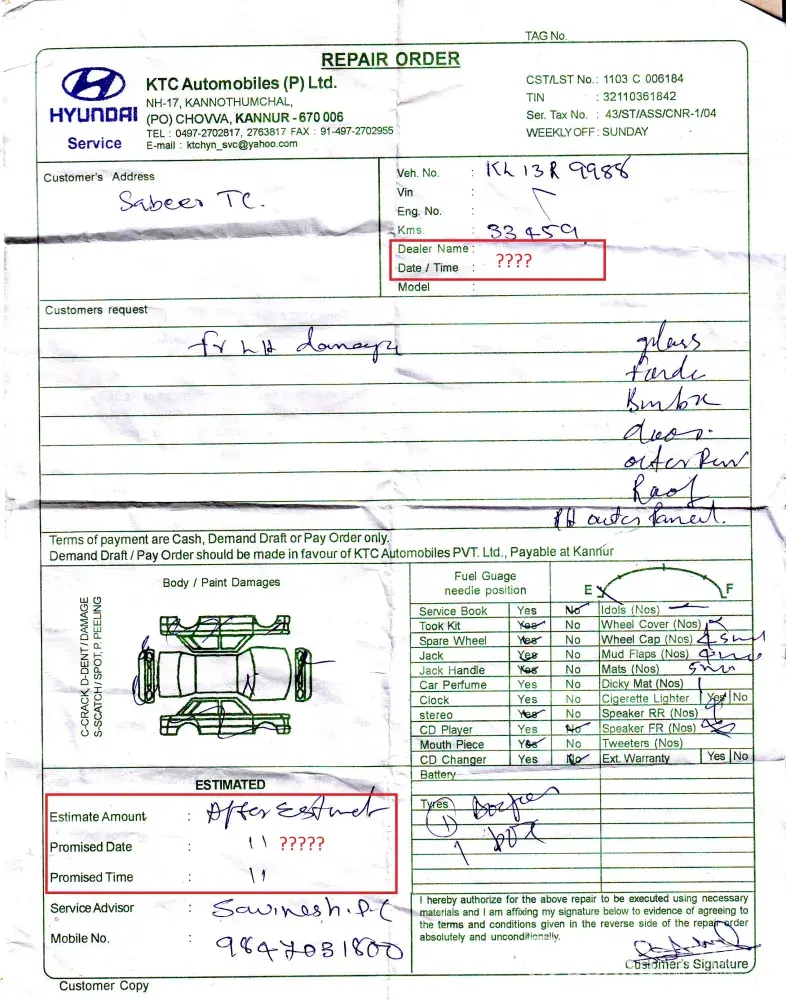 TAG No.
REPAIR ORDER
HYUNDAI
Service
KTC Automobiles (P) Ltd.
NH-17, KANNOTHUMCHAL,
(PO) CHOVVA, KANNUR - 670 006
TEL : 0497-2702817, 2763817 FAX : 91-497-2702955
E-mail : ktchyn_svc@yahoo.com
CST/LST No. : 1103 C 006184
TIN : 32110361842
Ser. Tax No. : 43/ST/ASS/CNR-1/04
WEEKLY OFF : SUNDAY
Customer's Address
Sabeer TC.
Veh. No. : KL 13 R 9988
Vin :
Eng. No. :
Kms. : 33459
Dealer Name :
Date / Time : ????
Model :
Customers request
fr LH damage
glass
Door.
Roof
RH outer
Terms of payment are Cash, Demand Draft or Pay Order only.
Demand Draft / Pay Order should be made in favour of KTC Automobiles PVT. Ltd., Payable at Kannur
Body / Paint Damages
C-CRACK, D-DENT / DAMAGE
S-SCATCH / SPOT, P. PEELING
Fuel Guage
needle position
E F
Service Book Yes No Idols (Nos)
Took Kit Yes No Wheel Cover (Nos)
Spare Wheel Yes No Wheel Cap (Nos)
Jack Yes No Mud Flaps (Nos)
Jack Handle Yes No Mats (Nos)
Car Perfume Yes No Dicky Mat (Nos)
Clock Yes No Cigerette Lighter Yes No
stereo Yes No Speaker RR (Nos)
CD Player Yes No Speaker FR (Nos)
Mouth Piece Yes No Tweeters (Nos)
CD Changer Yes No Ext. Warranty Yes No
Battery
Tyres
ESTIMATED
Estimate Amount : After
Promised Date : 11 ?????
Promised Time : 11
Service Advisor : Savinesh. P.C
Mobile No. : 9847031800
I hereby authorize for the above repair to be executed using necessary
materials and I am affixing my signature below to evidence of agreeing to
the terms and conditions given in the reverse side of the repair order
absolutely and unconditionally.
Customer's Signature
Customer Copy